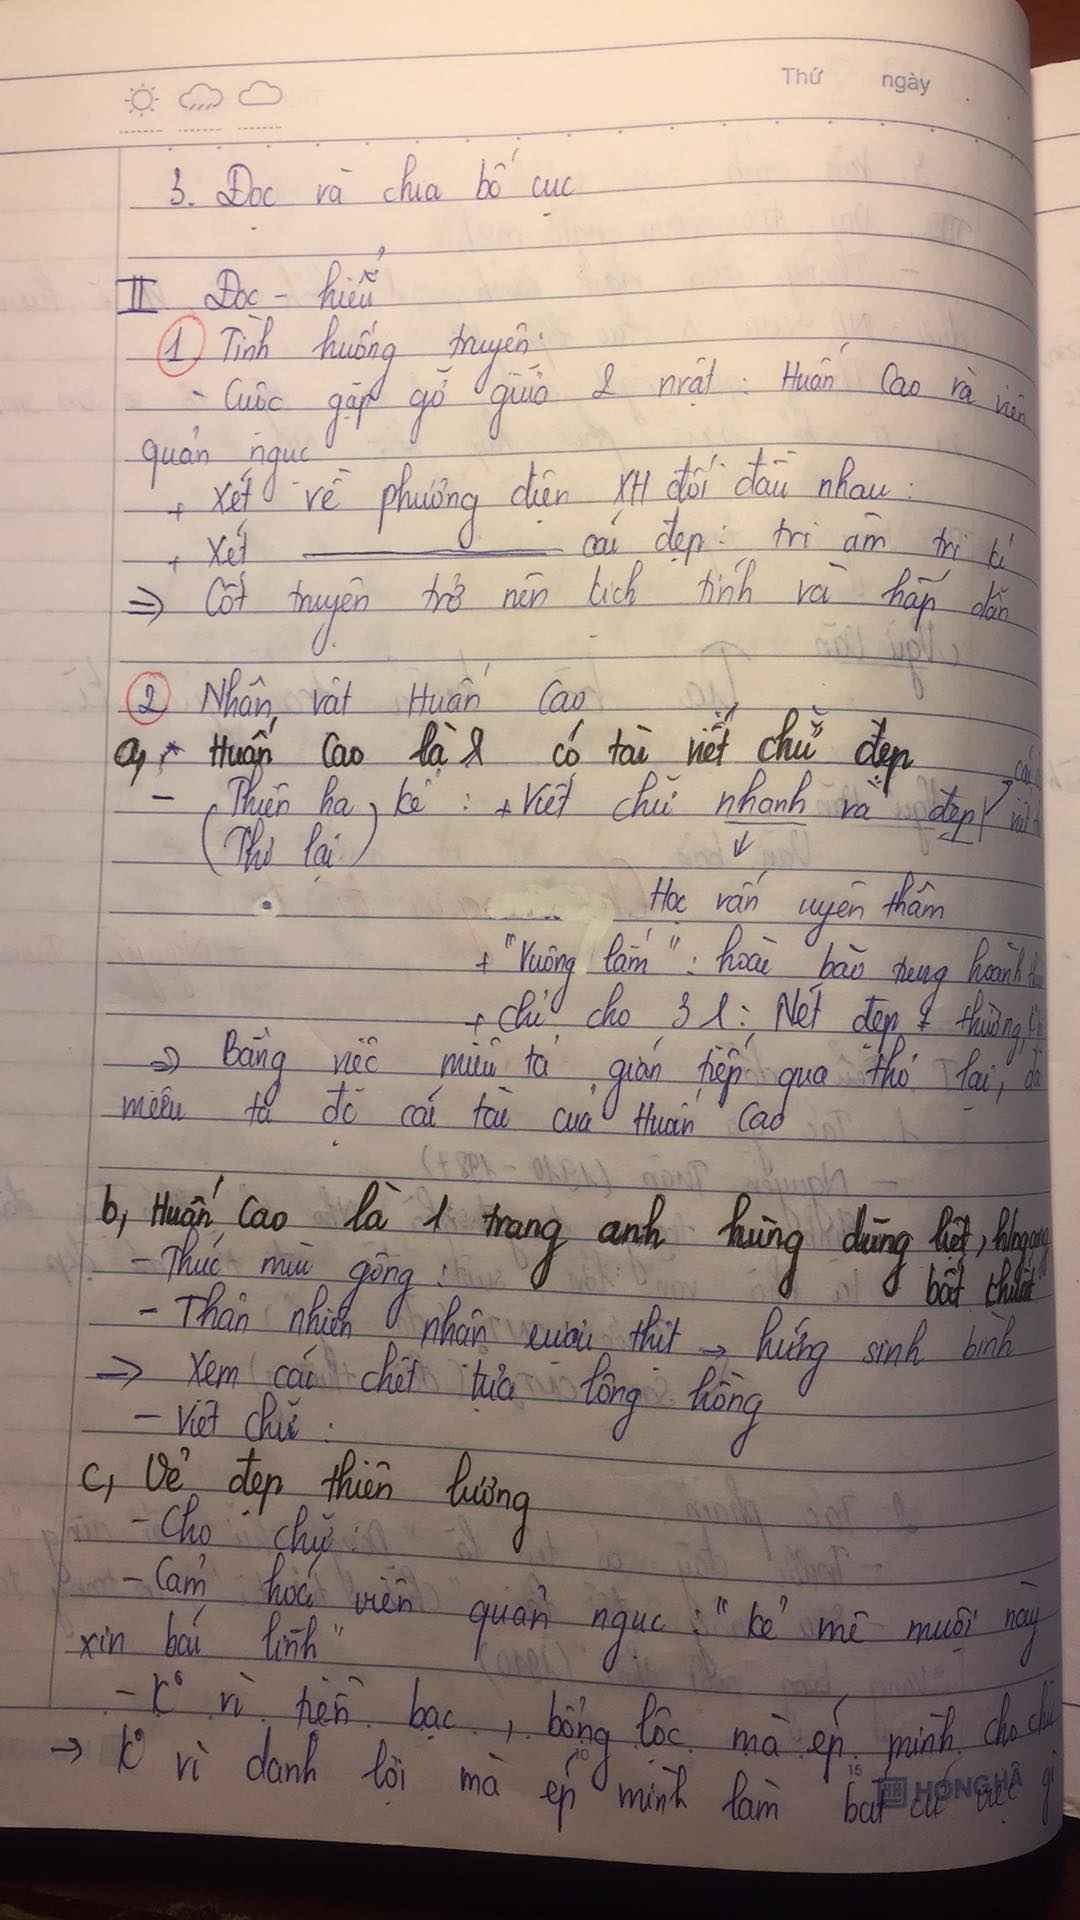 Thứ ngày
3. Đọc và chia bố cục
II Đọc - hiểu
1, Tình huống truyện:
- Cuộc gặp gỡ giữa 2 nvật: Huấn Cao và viên
quản ngục
+ Xét về phương diện XH đối đầu nhau:
+ Xét ——— cái đẹp: tri âm tri kỉ
=> Cốt truyện trở nên kịch tính và hấp dẫn
2 Nhân vật Huấn Cao
a, * Huấn Cao là 1 có tài viết chữ đẹp
- (Thiên hạ) kể: + Viết chữ nhanh và đẹp
(Thơ lại)
Học vấn uyên thâm
+ "Vuông lắm": hoài bão tung hoành
+ Chỉ cho 3 l: Nét đẹp thường,
=> Bằng việc miêu tả gián tiếp qua thơ lại, đã
miêu tả đc cái tài của Huấn Cao
b, Huấn Cao là 1 trang anh hùng dũng liệt, hiên ngang
bất khuất
- Thúc mũi gông:
- Thản nhiên nhận rượu thịt -> hứng sinh bình
=> Xem cái chết tựa lông hồng
- Viết chữ:
c, Vẻ đẹp thiên lương
- Cho chữ:
- Cảm hoá viên quản ngục: "kẻ mê muội này
xin bái lĩnh"
- K° vì tiền bạc, bổng lộc mà ép mình cho chữ
-> K° vì danh lợi mà ép mình làm bất cứ việc gì
HONG HA